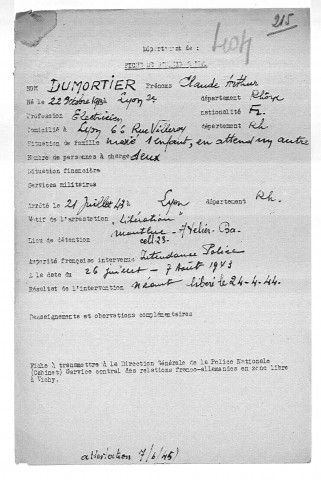 215
Département de :
404
FICHE DE
NOM DUMORTIER Prénoms Claude Arthur
Né le 22 Octobre Lyon 2e département Rhône
Profession Electricien nationalité Fs.
Domicilié à Lyon 66 Rue Villeroy département Rh.
Situation de famille marié 1 enfant, en attend un autre
Nombre de personnes à charge deux
Situation financière
Services militaires
Arrêté le 21 Juillet 43 à Lyon département Rh.
Motif de l'arrestation "Libération"
Lieu de détention montluc
cell 23
Autorité française intervenue Intendance Police
A la date du 26 juillet - 7 Août 1943
Résultat de l'intervention néant libéré le 24-4-44.
Renseignements et obervations complémentaires
Fiche à transmettre à la Direction Générale de la Police Nationale
(Cabinet) Service central des relations franco-allemandes en zone libre
à Vichy.
attestation 7/6/45)